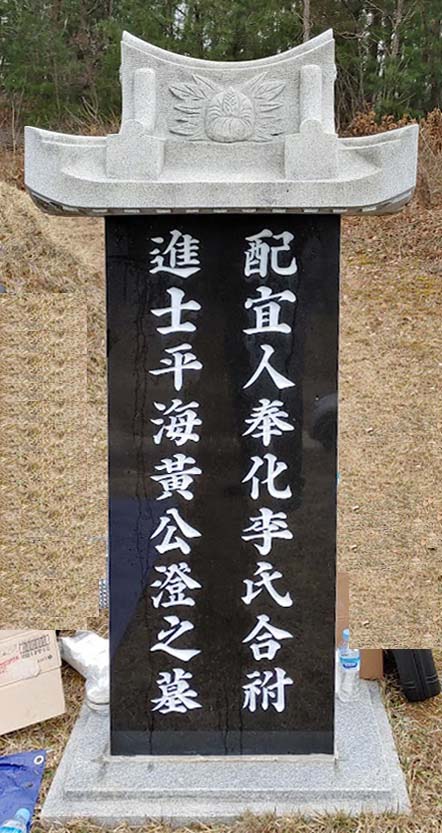 配宜人奉化李氏合祔
進士平海黃公澄之墓